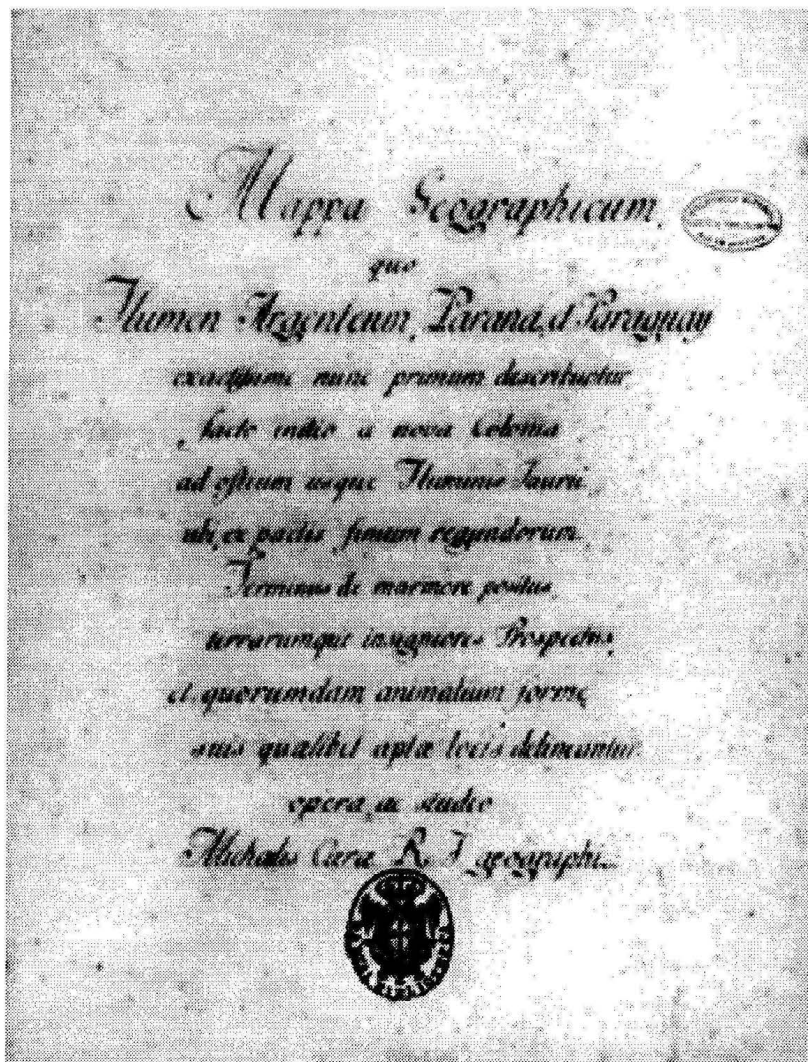 Mappa Geographicum,
quo
Flumen Argenteum, Paraná, et Paraguay
exactissime nunc primum describuntur
facto initio a nova Colonia
ad ostium usque Fluminis Jaurú
ubi ex pactis finium regundorum
Terminus de marmore positus,
terrarumque insigniores Prospectus,
et quorumdam animalium formæ
suis quælibet aptæ locis delineantur.
opera, ac studio
Michælis Ciera R. I. geographi